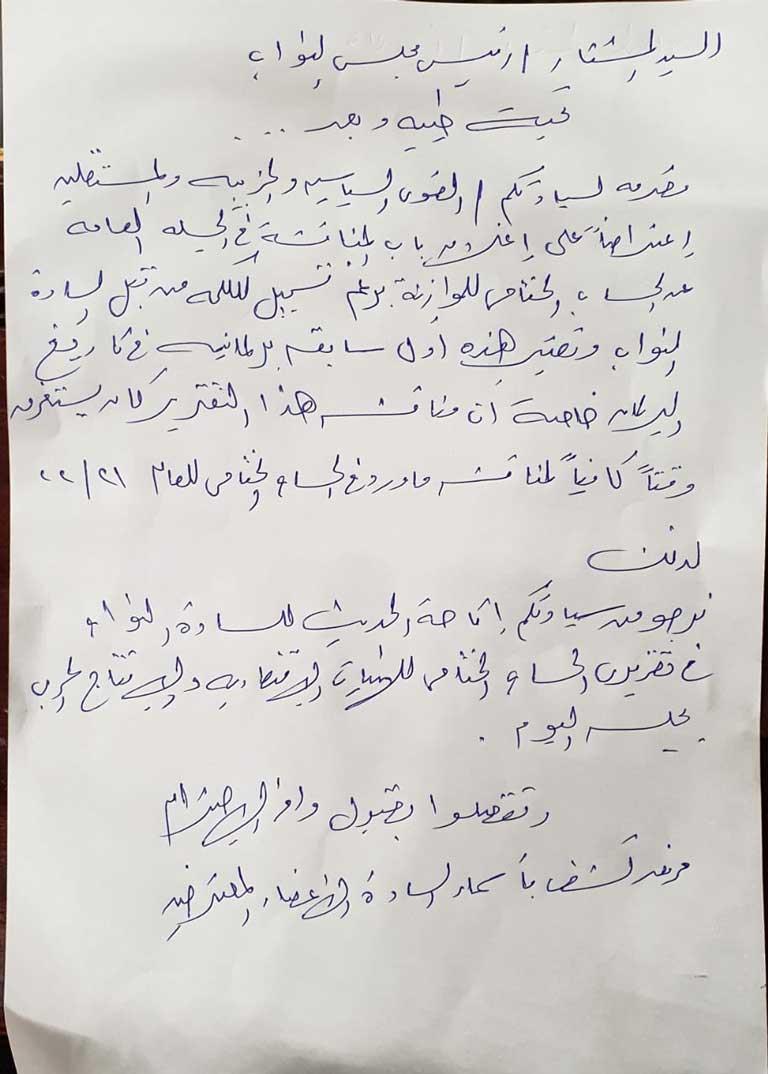 السيد المستشار / رئيس مجلس النواب
تحية طيبه وبعد ...
مقدمه لسيادتكم / القوى السياسيه والحزبيه والمستقلين
اعتراضاً على إغلاق باب المناقشة في الجلسه العامه
عن الحساب الختامى للموازنة برغم تسجيل الكلمه من قبل السادة
النواب وتعتبر هذه أول سابقه برلمانيه في تاريخ
البرلمان خاصة أن مناقشه هذا التقرير كان يستغرق
وقتاً كافياً لمناقشه ماورد في الحساب الختامى للعام ٢١/٢٢
لذلك
نرجو من سيادتكم اتاحة الحديث للسادة النواب
في تقريرى الحساب الختامى للهيئات الاقتصاديه والانتاج الحربى
بجلسه اليوم .
وتفضلوا بقبول وافر الاحترام
مرفق كشف بأسماء السادة الأعضاء المعترضين